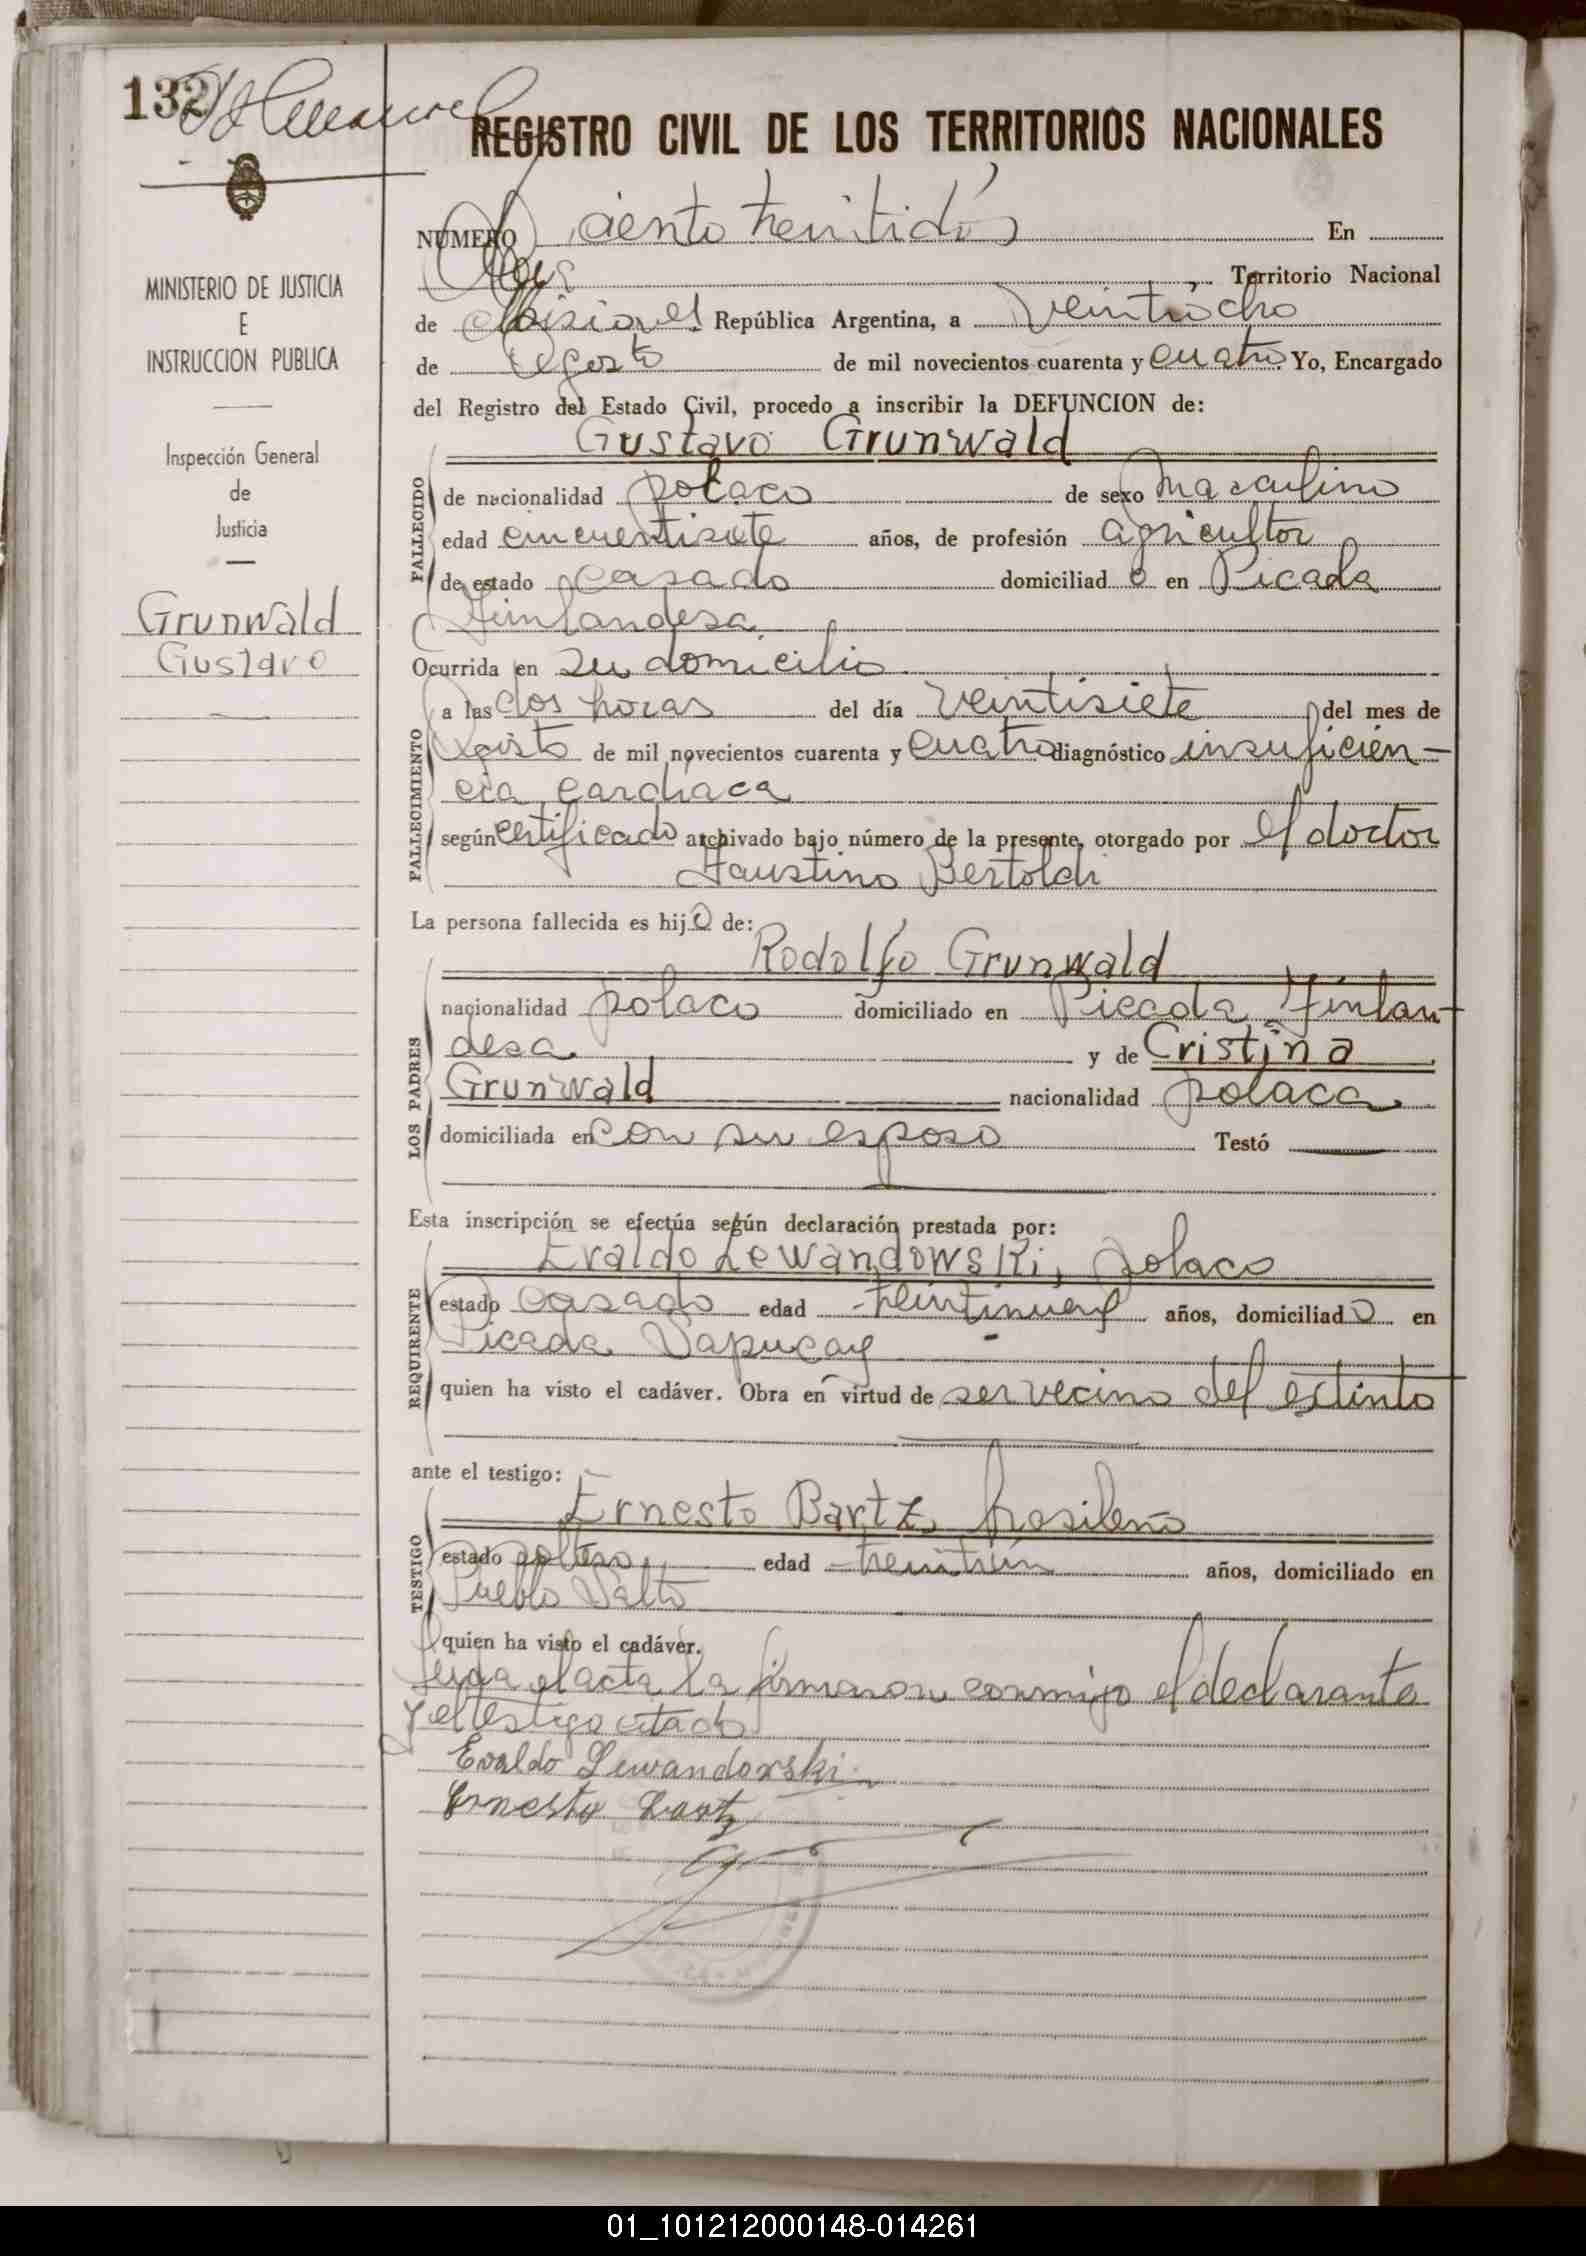 132
REGISTRO CIVIL DE LOS TERRITORIOS NACIONALES
MINISTERIO DE JUSTICIA
E
INSTRUCCION PUBLICA
Inspección General
de
Justicia
Grunwald
Gustavo
NUMERO ciento treintidós En
Territorio Nacional
de Misiones República Argentina, a veintiocho
de Agosto de mil novecientos cuarenta y cuatro Yo, Encargado
del Registro del Estado Civil, procedo a inscribir la DEFUNCION de:
Gustavo Grunwald
FALLECIDO
de nacionalidad polaco de sexo masculino
edad cincuentisiete años, de profesión agricultor
de estado casado domiciliado en Picada
Finlandesa
Ocurrida en su domicilio
FALLECIMIENTO
a las dos horas del día veintisiete del mes de
Agosto de mil novecientos cuarenta y cuatro diagnóstico insuficien-
cia cardiaca
según certificado archivado bajo número de la presente, otorgado por el doctor
Faustino Bertoldi
La persona fallecida es hijo de:
Rodolfo Grunwald
LOS PADRES
nacionalidad polaco domiciliado en Picada Finlan-
desa y de Cristina
Grunwald nacionalidad polaca
domiciliada en con su esposo Testó
Esta inscripción se efectúa según declaración prestada por:
Evaldo Lewandowski, polaco
REQUIRENTE
estado casado edad treintinueve años, domiciliado en
Picada Sapucay
quien ha visto el cadáver. Obra en virtud de ser vecino del extinto
ante el testigo:
Ernesto Bartz, brasileño
TESTIGO
estado soltero, edad treintiun años, domiciliado en
Pueblo Salto
quien ha visto el cadáver.
Leida el acta la firmaron conmigo el declarante
y el testigo citado
Evaldo Lewandowski
Ernesto Bartz
01_101212000148-014261